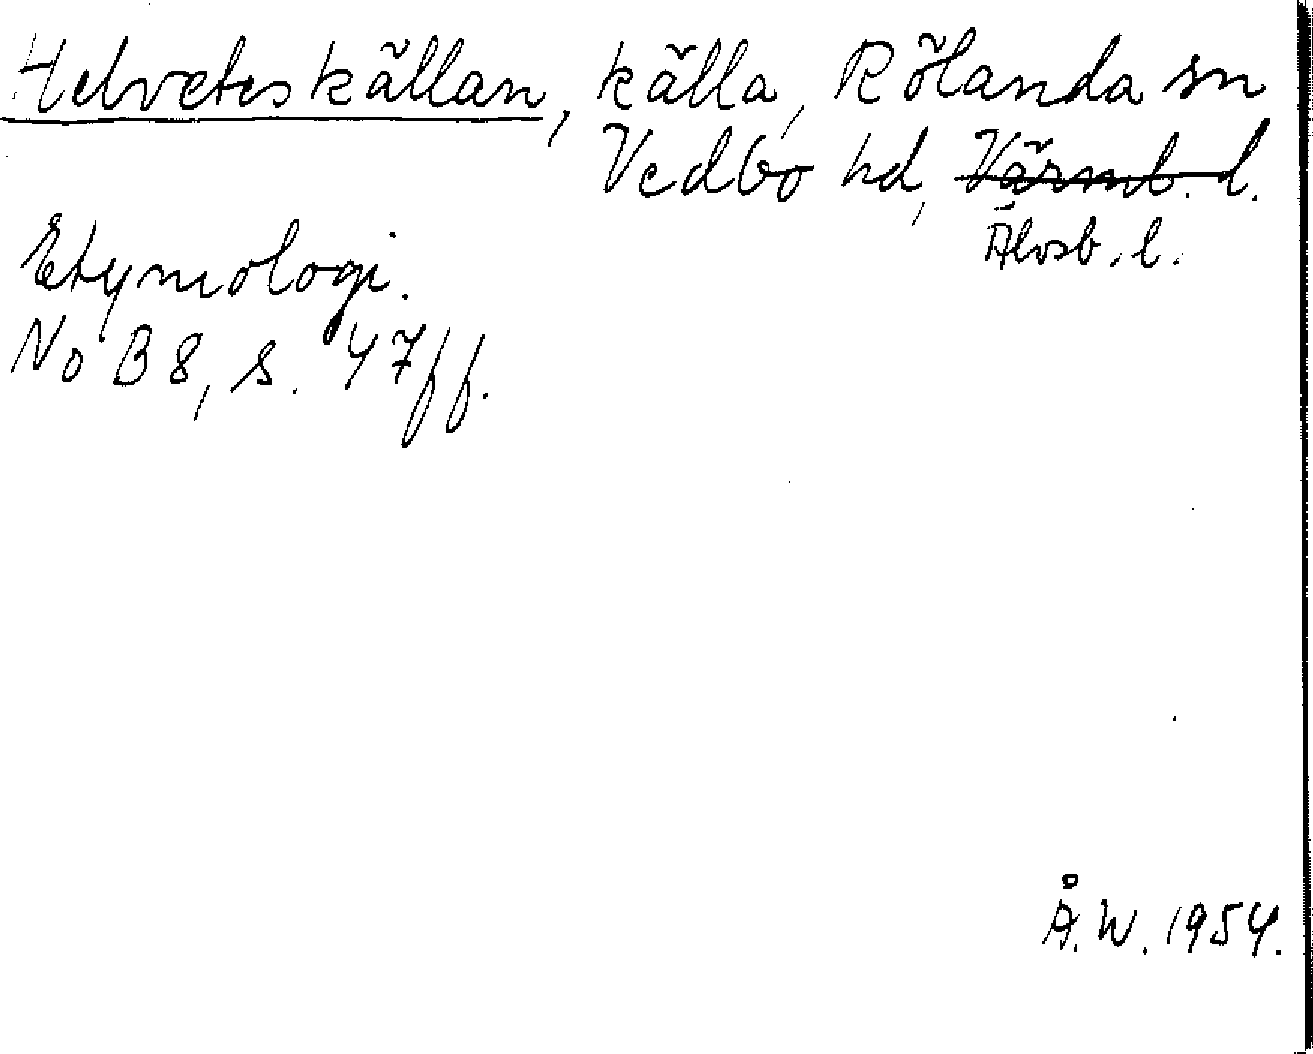 Helveteskällan, källa, Rölanda sn
Vedbo hd, Värml. l.
Älvsb. l.
Etymologi.
NoB 8, s. 47ff.
Å.W. 1954.